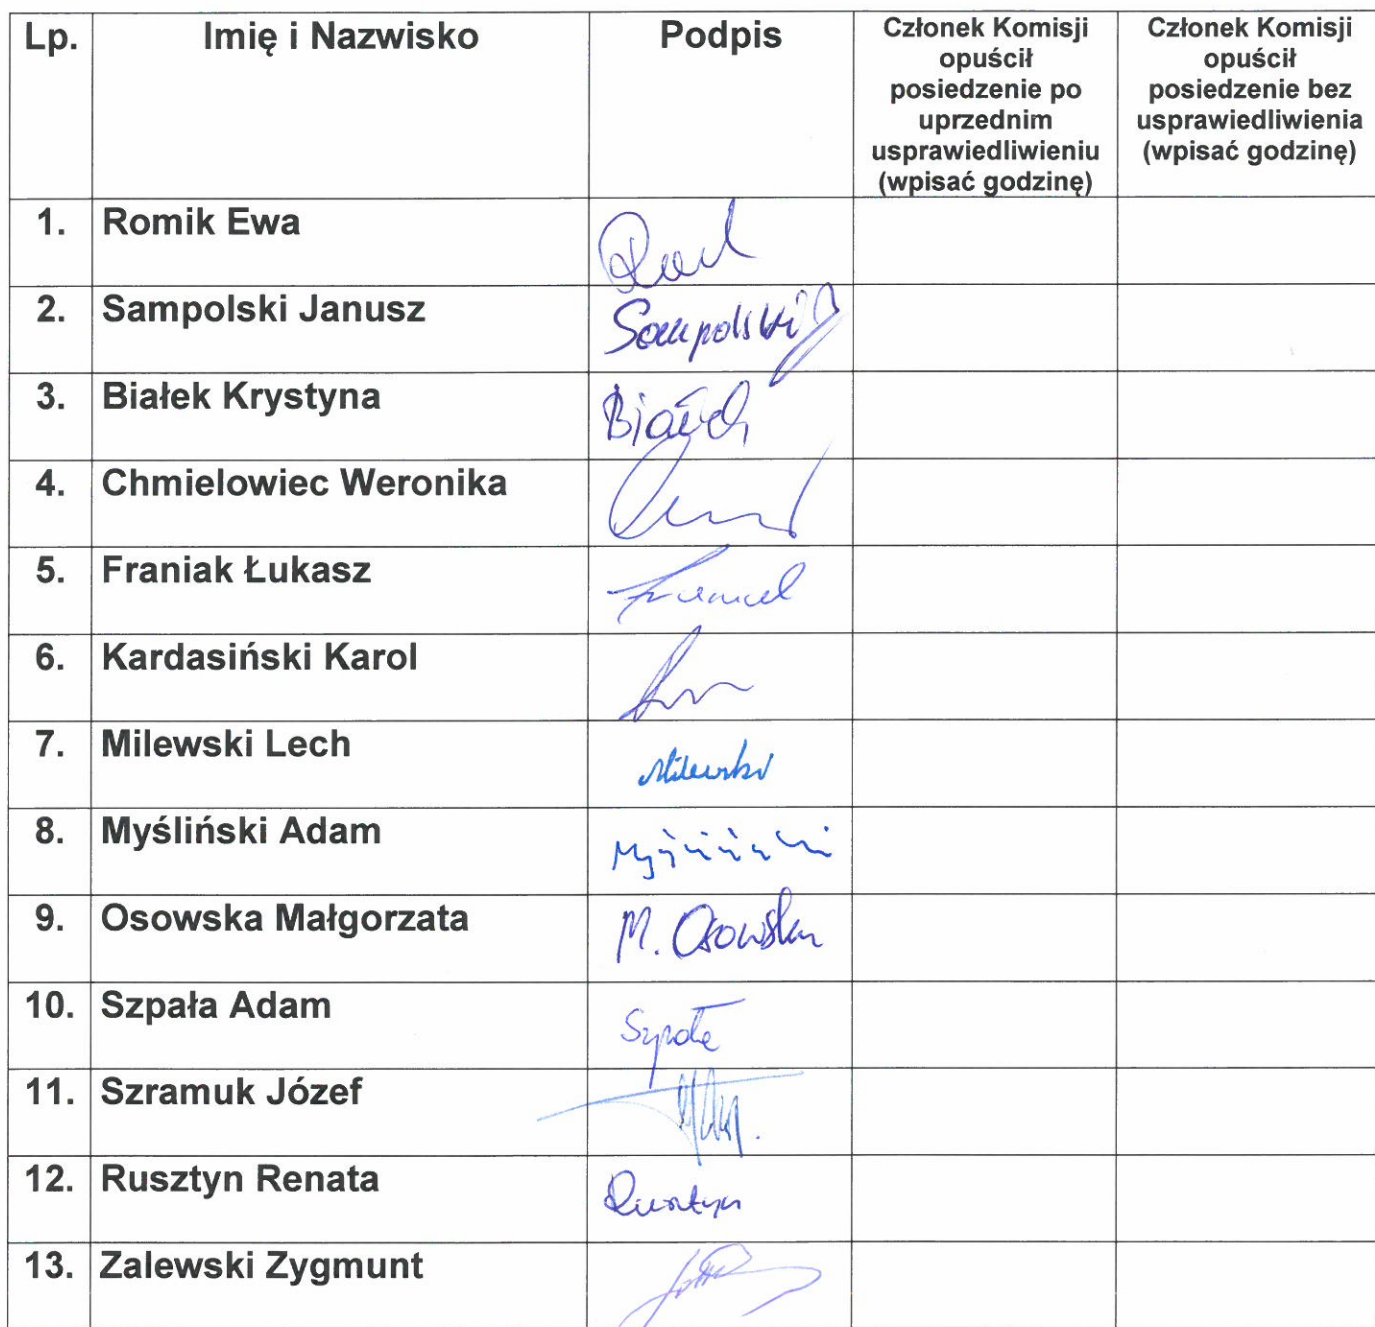 Lp. Imię i Nazwisko Podpis Członek Komisji opuścił posiedzenie po uprzednim usprawiedliwieniu (wpisać godzinę) Członek Komisji opuścił posiedzenie bez usprawiedliwienia (wpisać godzinę)
1. Romik Ewa
2. Sampolski Janusz Sampolski
3. Białek Krystyna Białek
4. Chmielowiec Weronika
5. Franiak Łukasz
6. Kardasiński Karol
7. Milewski Lech Milewski
8. Myśliński Adam Myśliński
9. Osowska Małgorzata M. Osowska
10. Szpała Adam Szpała
11. Szramuk Józef
12. Rusztyn Renata Rusztyn
13. Zalewski Zygmunt